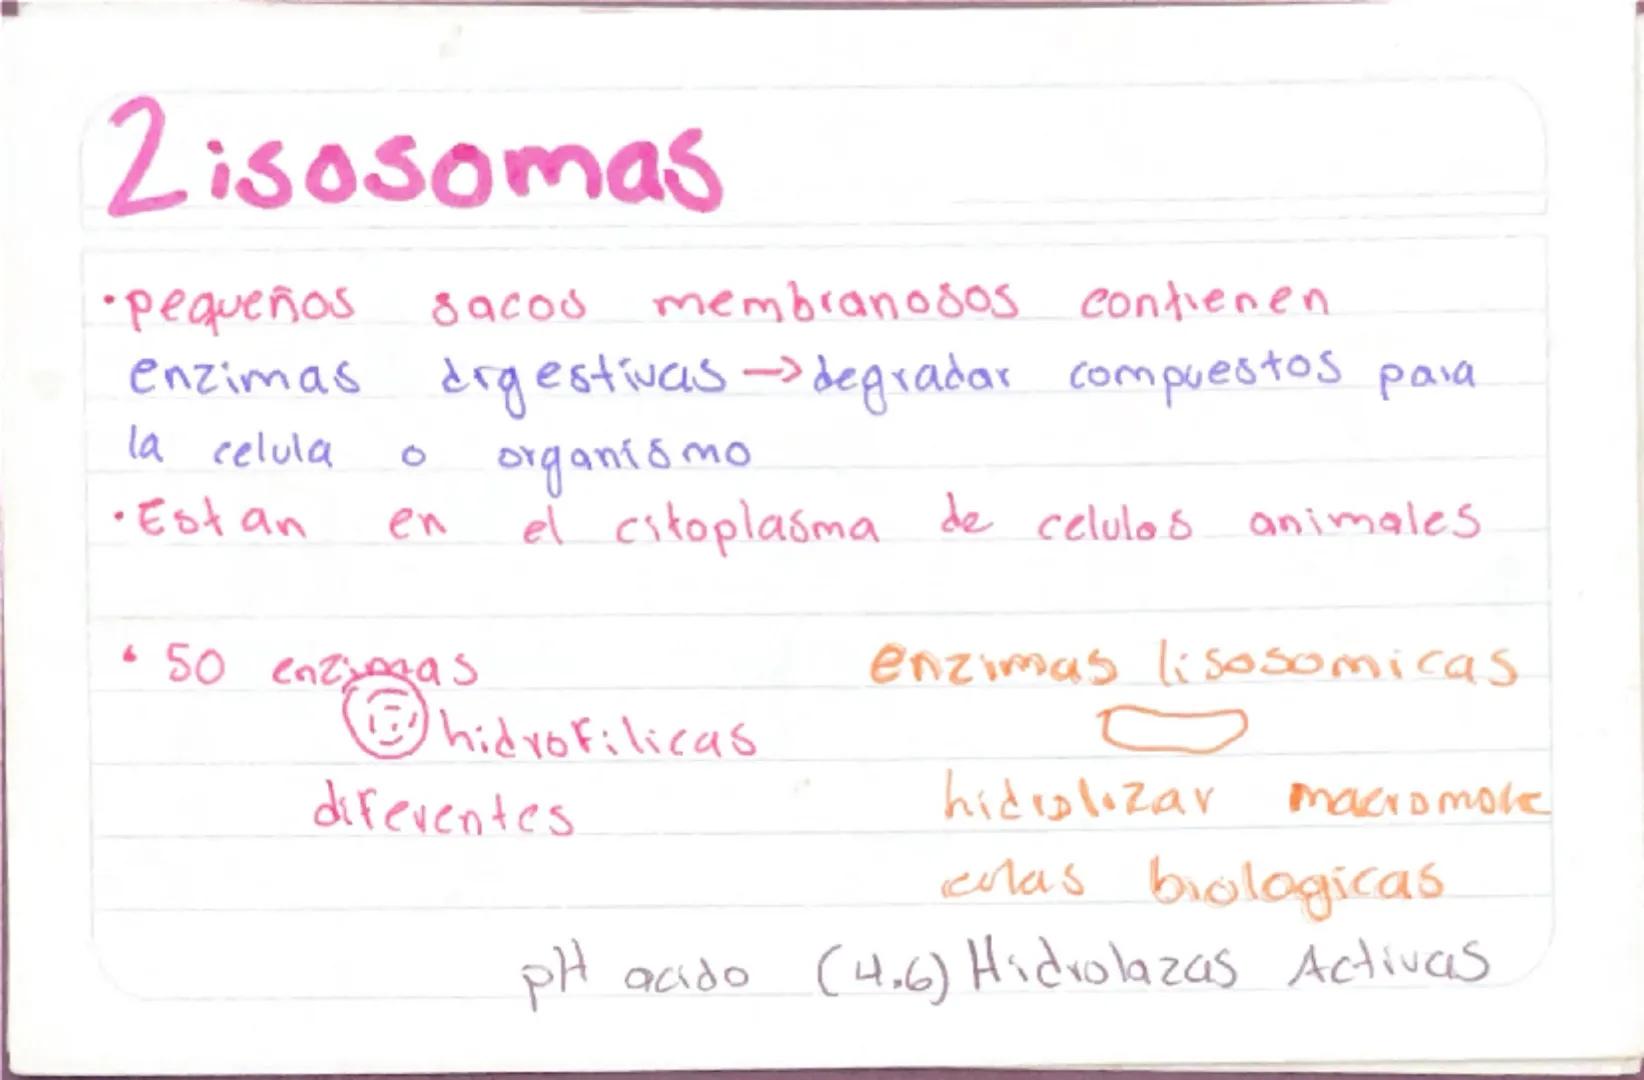 Lisosomas
·pequeños sacos membranosos contienen
enzimas digestivas → degradar compuestos para
la celula o organismo
·Estan en el citoplasma de celulas animales
· 50 enzimas
hidrofilicas
diferentes
enzimas lisosomicas
hidrolizar macromole
culas biologicas
pH acido (4.6) Hidrolazas Activas